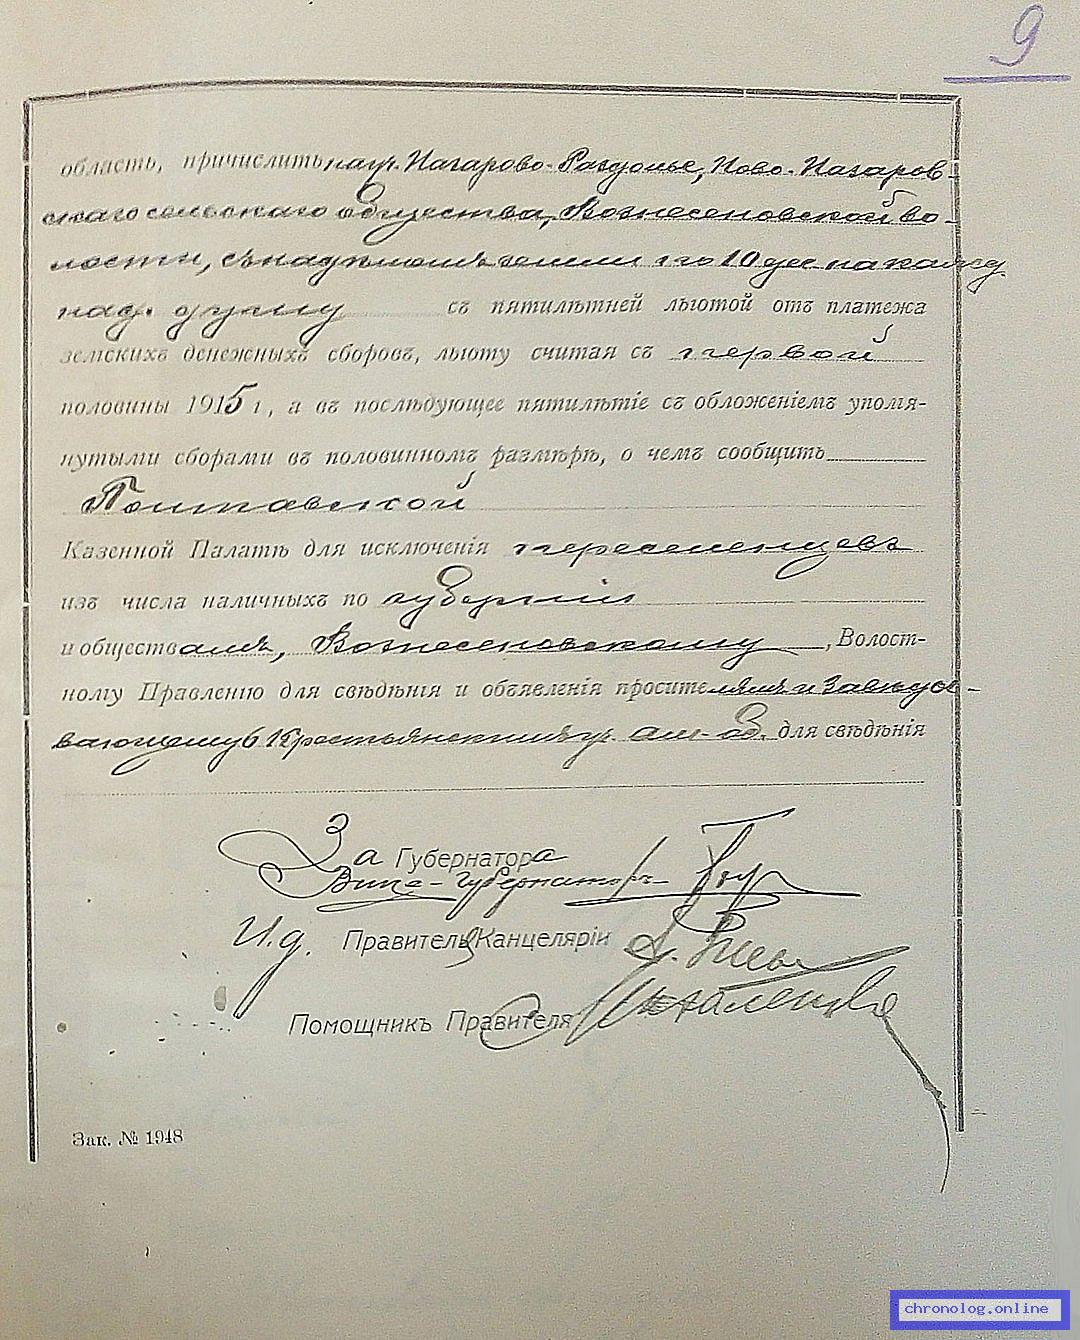 9
область, причислить къ уч. Назарово-Раздолье, Ново-Назаров-
скаго сельскаго общества, Вознесеновской во-
лости, съ надѣломъ земли по 10 дес на кажд.
над. душу с ъ пятилѣтней льготой отъ платежа
земскихъ денежныхъ сборовъ, льготу считая съ первой
половины 1915 г, а въ послѣдующее пятилѣтіе съ обложеніемъ упомя-
нутыми сборами въ половинномъ размѣрѣ, о чемъ сообщить
Полтавской
Казенной Палатѣ для исключенія переселенцевъ
изъ числа наличныхъ по губерніи
и обществамъ, Вознесеновскому, Волост-
ному Правленію для свѣдѣнія и объявленія просителямъ и Завѣды-
вающему 6 Крестьянскимъ уч. Ам. об. для свѣдѣнія
За Губернатора
Вице-Губернаторъ
И.д. Правителя Канцеляріи
Помощникъ Правителя
Зак. № 1948
chronolog.online